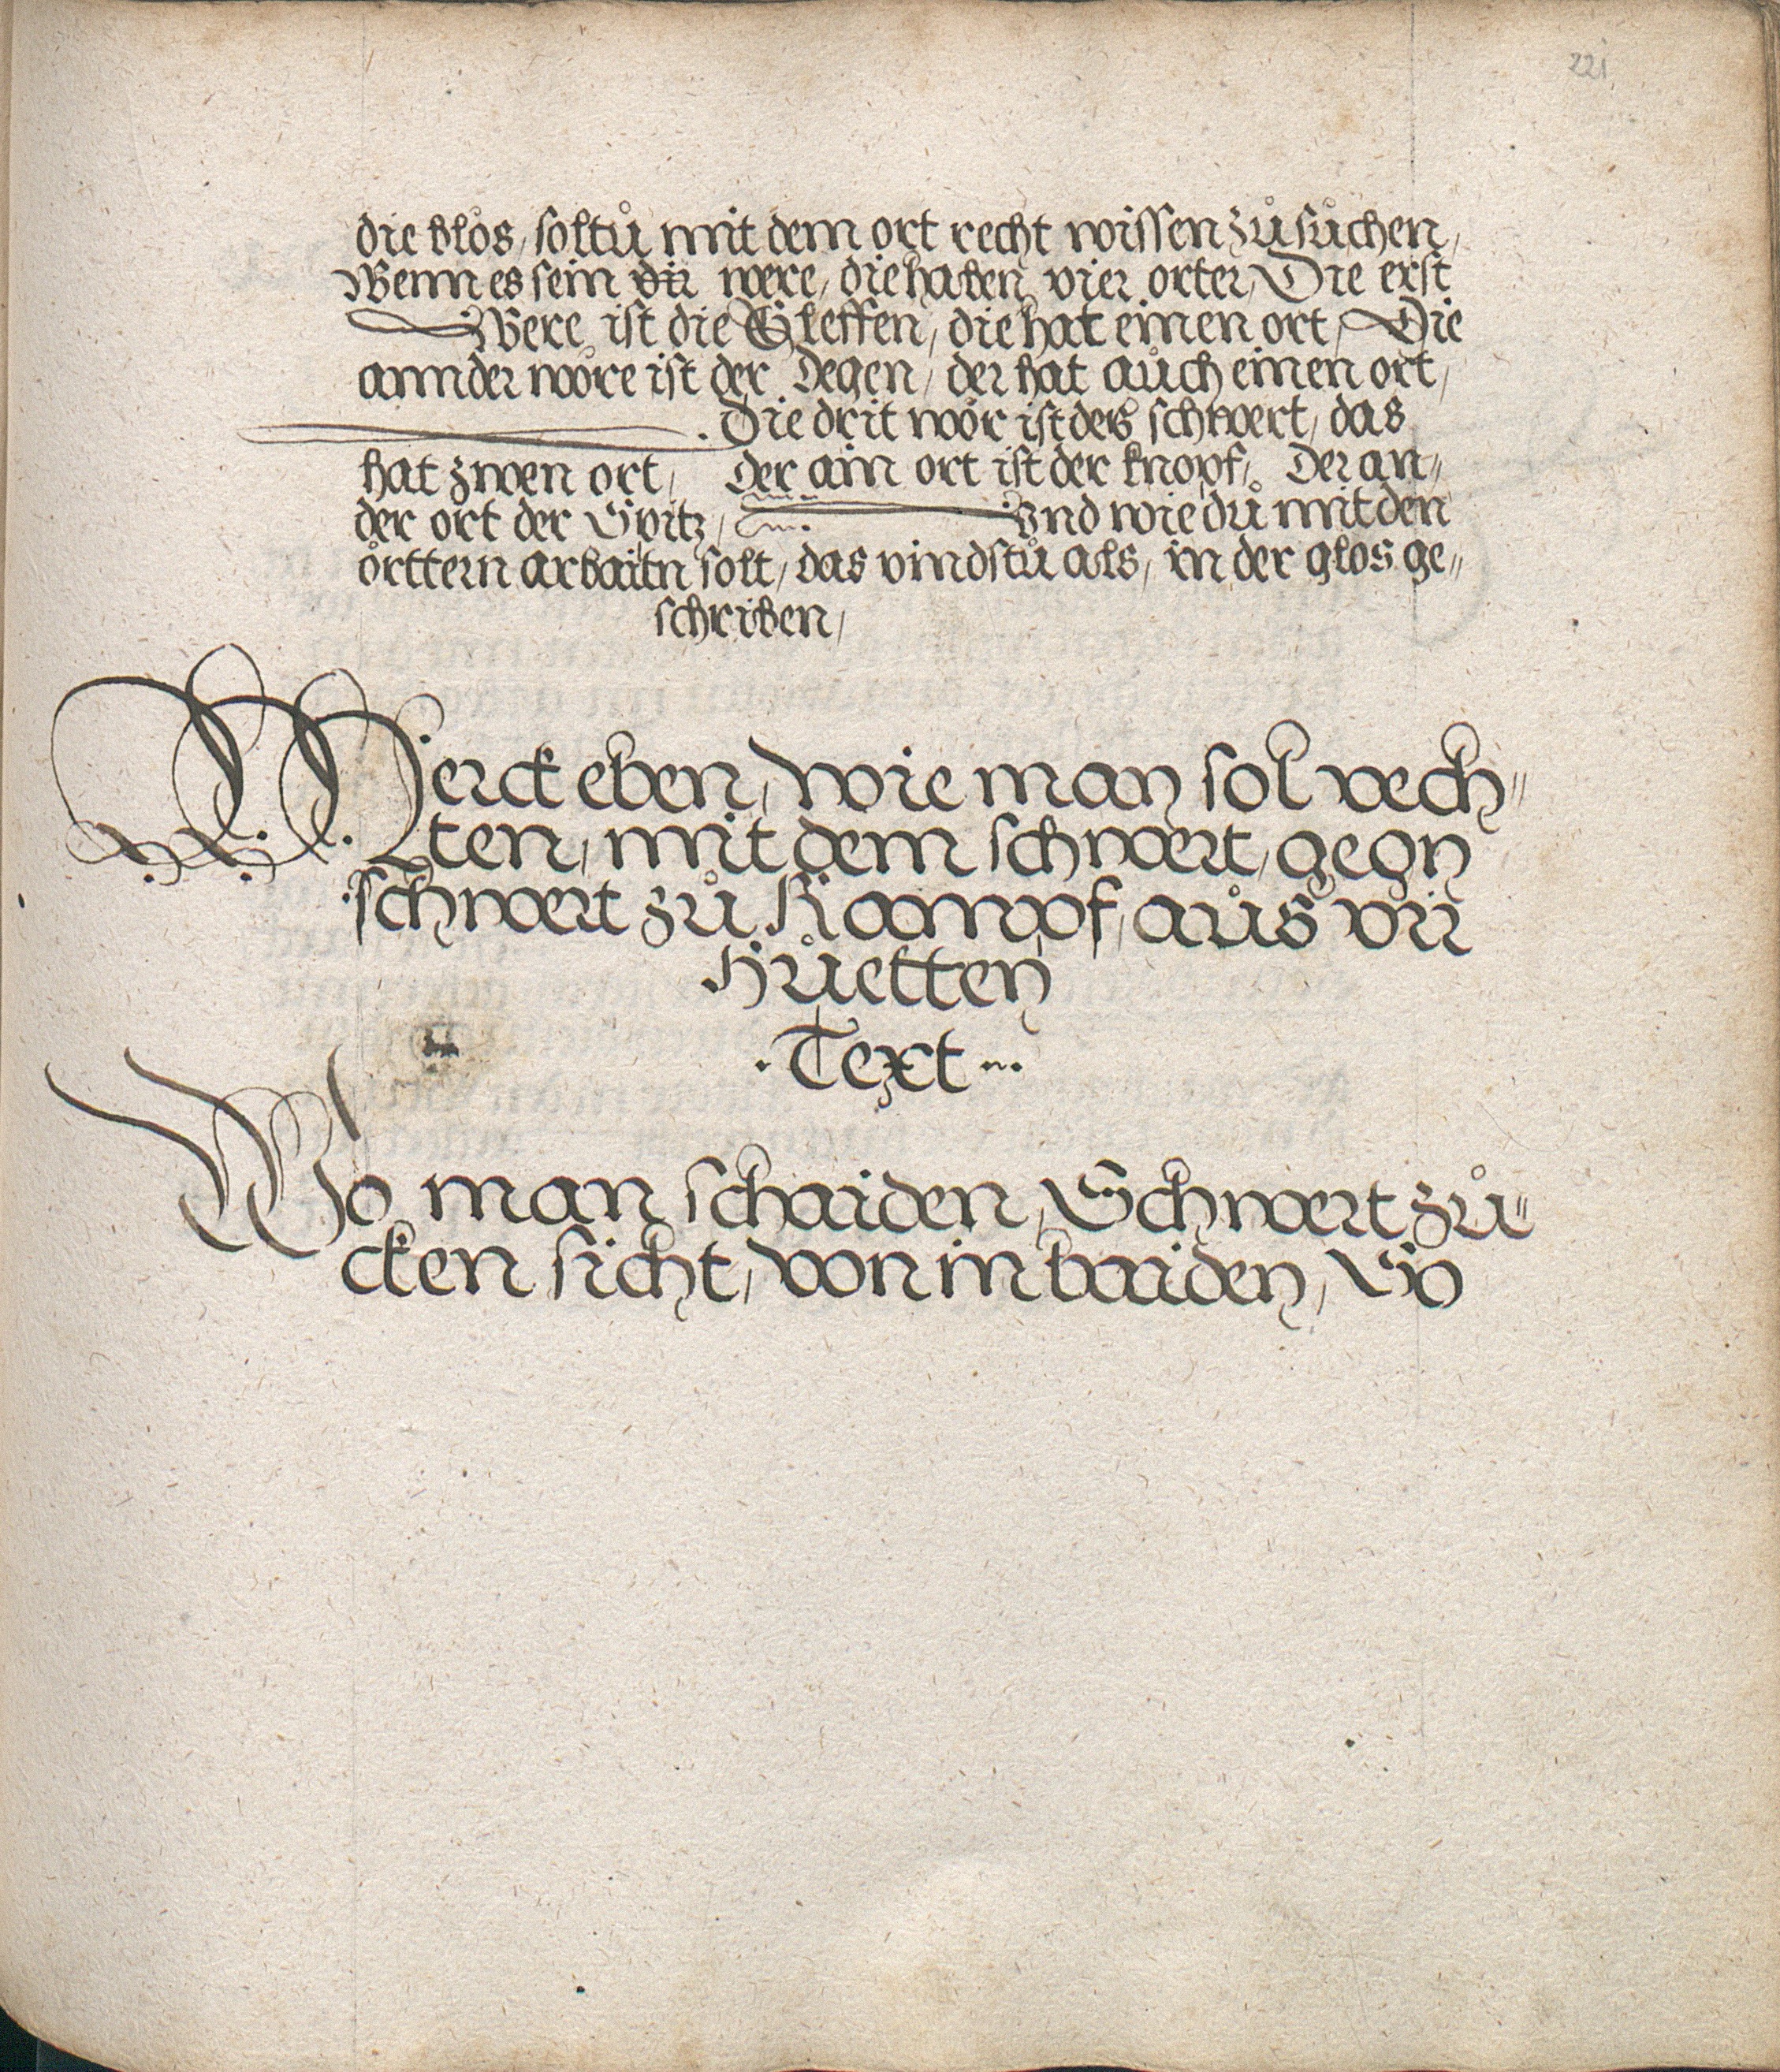 221
die blos, soltů mit dem ort recht wissen zů sůchen,
Wenn es sein drii were, die haben vier orter, Die erst
Were ist die Gleffen, die hat einen ort, Die
annder wöre ist der Degen, der hat aůch einen ort,
Die drit wör ist ders schwert, das
hat zwen ort, Der ain ort ist der knopf, Der an„
der ort der Spitz, Vnd wie dů mit den
örttern arbaitn solt, das vindstů als, in der glos ge„
schriben,
Merck eben, wie man sol vech„
ten, mit dem schwert, gegn
schwert zů Kampf, aůs vir
Hůetten
Text
Wo man schaiden, Schwert zů„
cken sicht, von in baiden, So